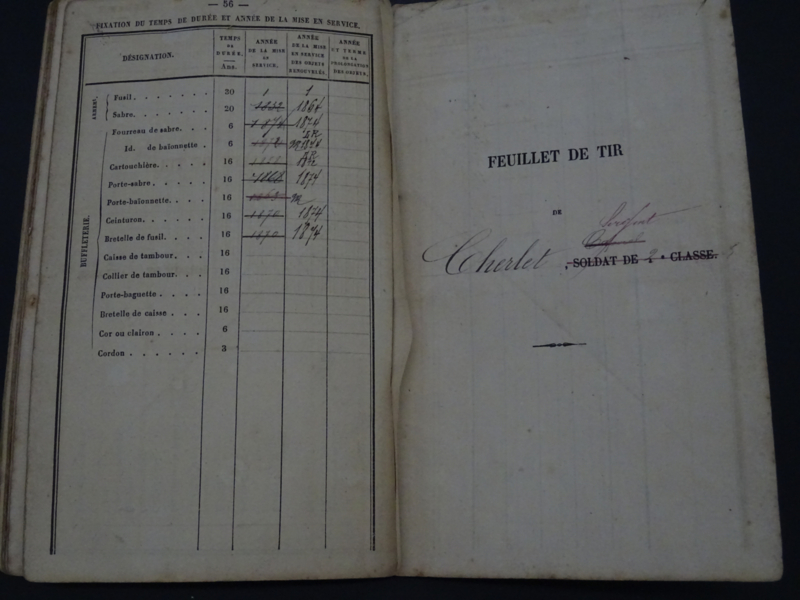 — 56 —
FIXATION DU TEMPS DE DURÉE ET ANNÉE DE LA MISE EN SERVICE.
DÉSIGNATION. TEMPS DE DURÉE. Ans. ANNÉE DE LA MISE EN SERVICE. ANNÉE DE LA MISE EN SERVICE DES OBJETS RENOUVELÉS. ANNÉE ET TERME DE LA PROLONGATION DES OBJETS.
Fusil 30 1 1
Sabre 20 1864
Fourreau de sabre 6 1874 1874
Id. de baïonnette 6
Cartouchière 16
Porte-sabre 16 1874
Porte-baïonnette 16
Ceinturon 16 1870 1874
Bretelle de fusil 16 1870 1874
Caisse de tambour 16
Collier de tambour 16
Porte-baguette 16
Bretelle de caisse 16
Cor ou clairon 6
Cordon 3
BUFFLETERIE.
FEUILLET DE TIR
DE
Cherlet, SOLDAT DE 2e CLASSE.